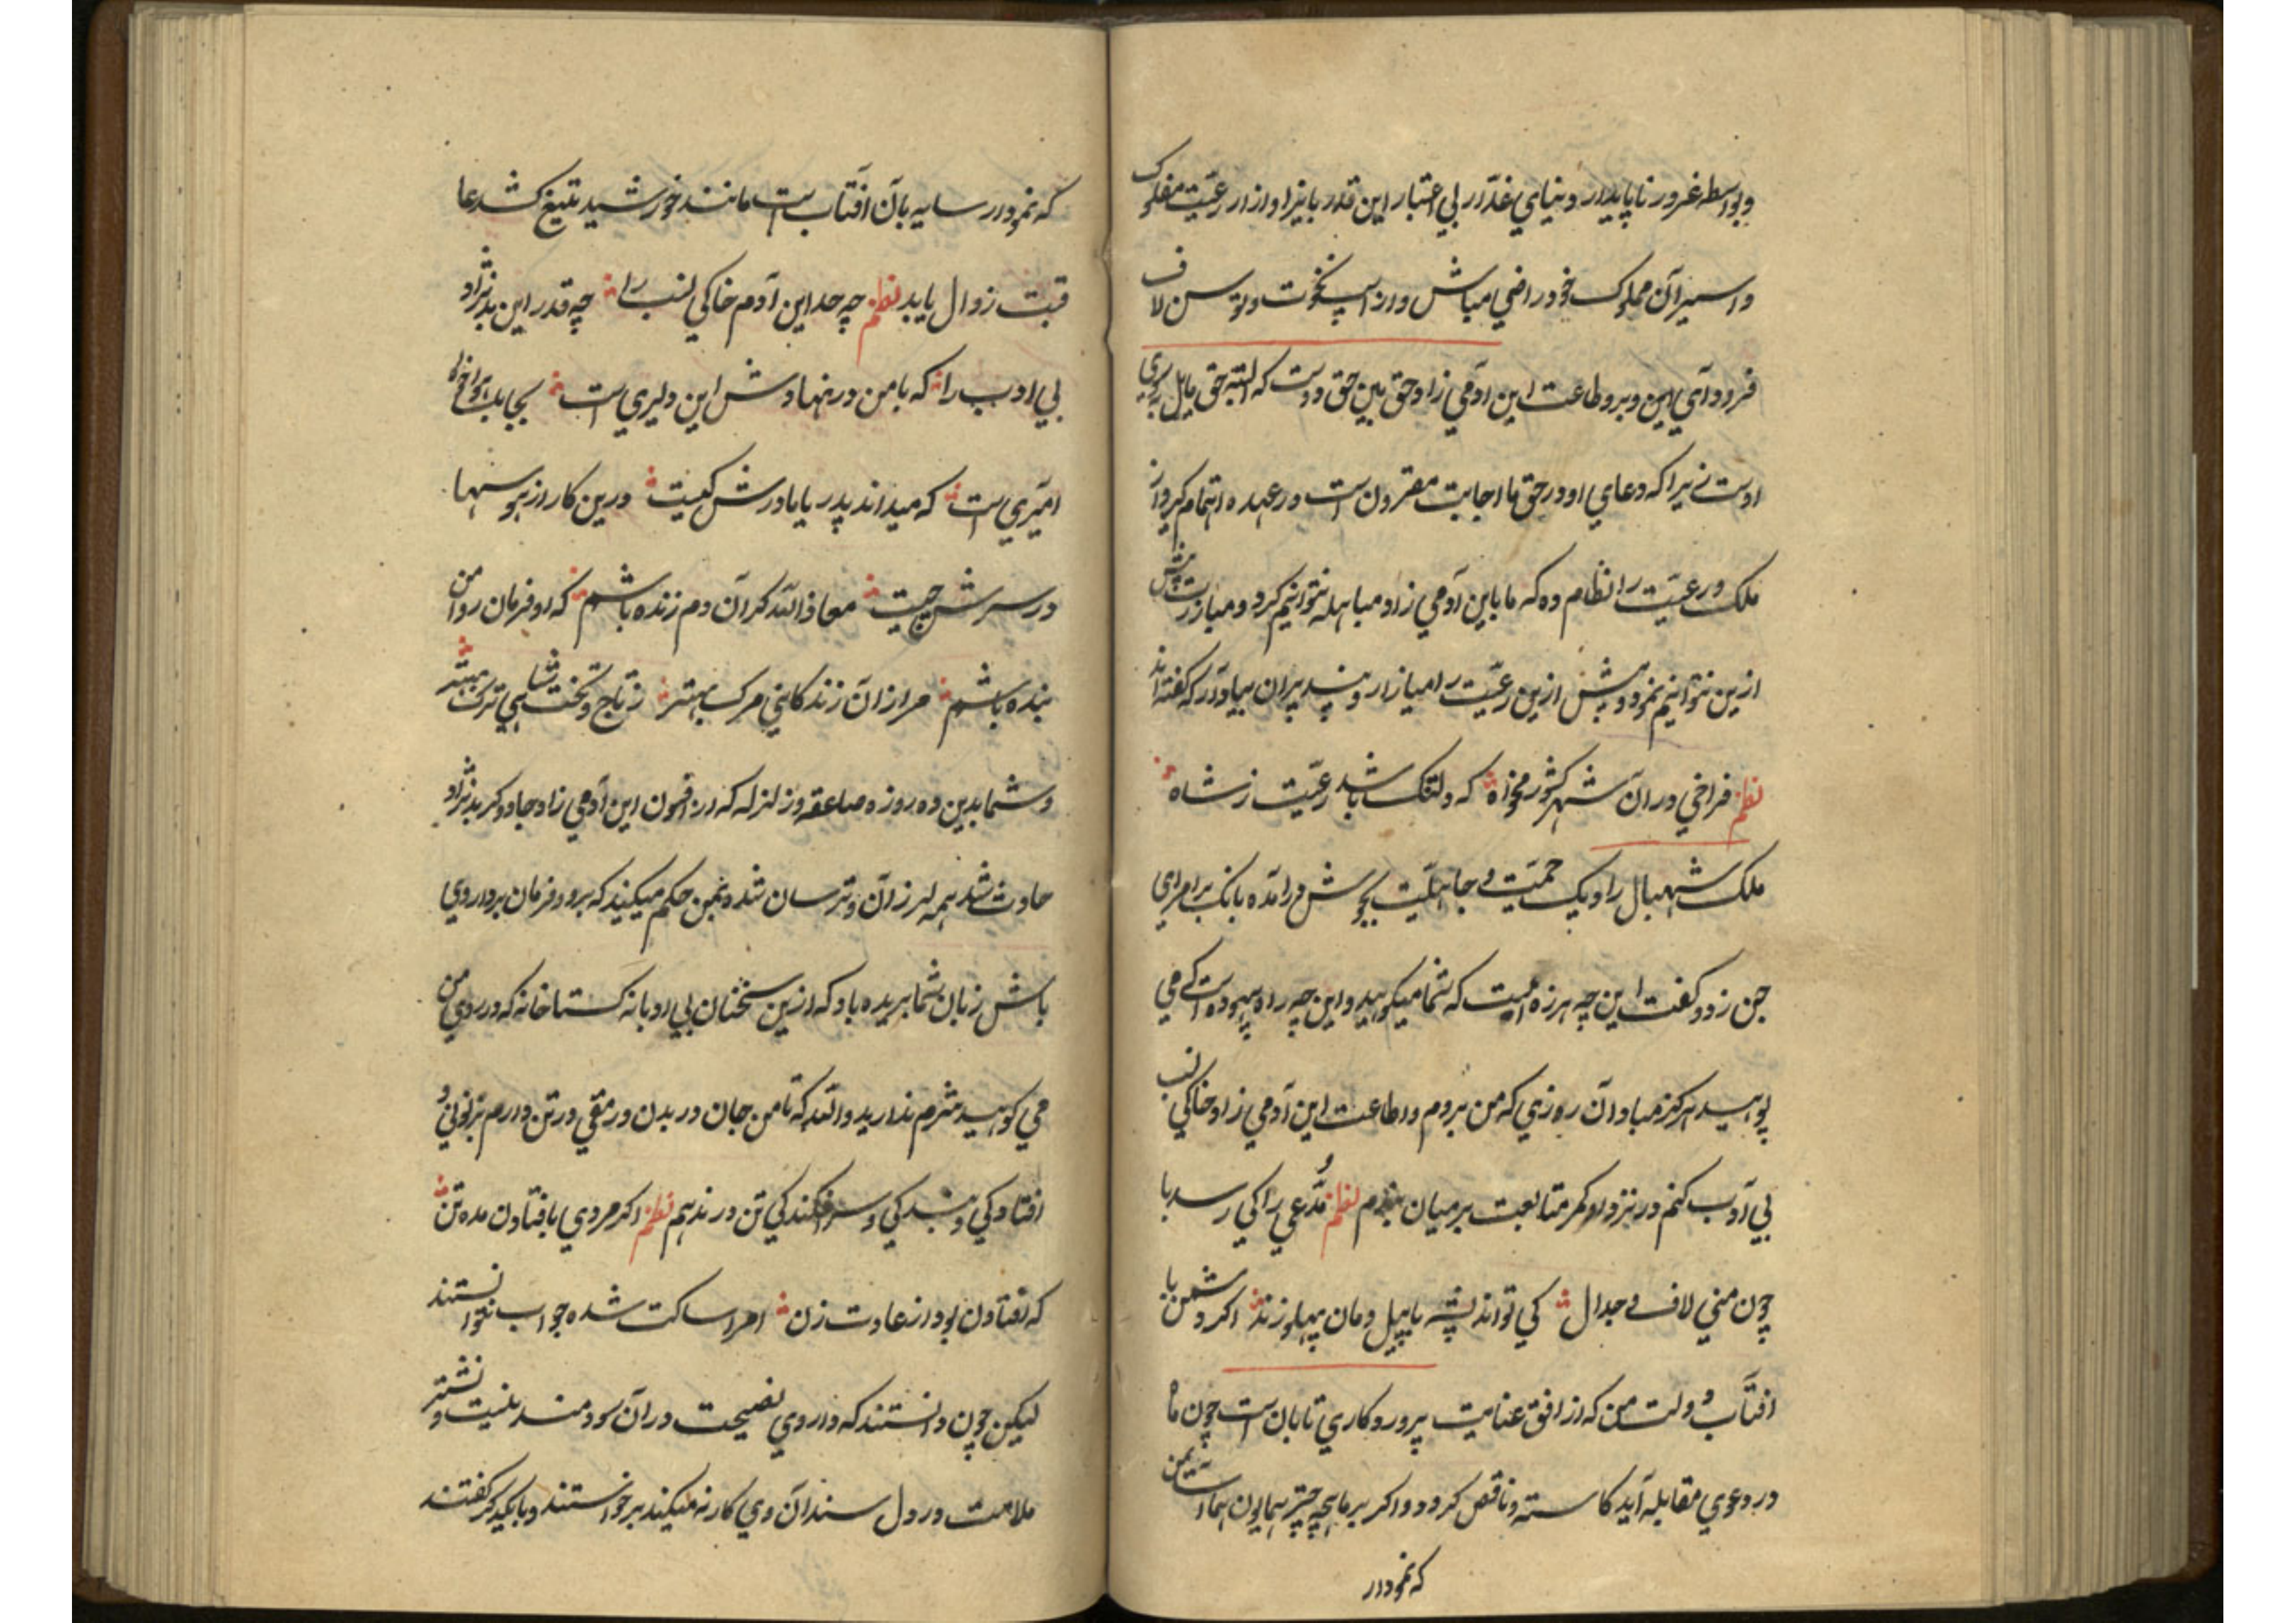 وبواسطه غرور ناپایدار دنیای غدّار بی اعتبار این قدر بایذا و ازار رعیّت مفلوک
و اسیر آن مملوک خود راضی مباش و از اسپ نخوت و توسن لاف
فرود آی این و برو طاعت این آدمی زاد حق بین حق دوست که البته حق مایل بروی
اوست زیرا که دعای او در حق ما اجابت مقرون است در عهده اتمام کرد از
ملک و رعیّت را نظام ده که ما باین آدمی زاد مباهله نتوانیم کرد و مبارزت پیش
ازین نتوانیم نمود و پیش ازین رعیّت را میازار و پند پیران بیاد آر که گفته اند
نظم فراخی در آن شهر کشور مخواه که دلتنگ باشد رعیّت ز شاه
ملک شهبال را دیک حمیّت و جاهلیّت بجوش درآمده بانک بر امرای
جن زد و گفت این چه هرزه ایست که شما میگویید و این چه راه بیهوده است که می
پویید هرگز مباد آن روزی که من بروم و اطاعت این آدمی زاد خاکی نسب
بی آدب کنم در نزد او کمر متابعت بر میان بندم نظم مدّعی را کی رسد با
چون منی لاف و جدال کی تواند پشه با پیل دمان پهلو زند اگر دشمن با
افتاب دولت من که از افق عنایت پروردگاری تابان است چون ماه
در دعوی مقابله آید کاسته و ناقص کردد و اگر بر ماهچه چتر همایون هما
که نمودار
که نمودار سایه بآن افتاب است مانند خورشید بتیغ کشد عا
قبت زوال یابد نظم چه حد این آدم خاکی نسب را چه قدر این بد نژاد
بی ادب را که با من در نهادش این دلیری است بجا
امیری است که میداند پدر یا مادرش کیست درین کار از هوسها
در سرش چیست معاذ الله کر آن دم زنده باشم که او فرمان روا من
بنده باشم مرا زان زندگانی مرک بهتر ز تاج و تخت شاهی ترک بهتر
و شما بدین ده روزه صاعقه و زلزله که از افسون این آدمی زاد جادوکر بد نژاد
حادث شد همه لرزان و ترسان شده بمن حکم میکنید که برو و فرمان بردار وی
باش زبان شما بریده باد که ازین سخنان بی ادبانه گستاخانه که در روی من
می گویید شرم ندارید والله که تا من جان در بدن و رمقی در تن دارم بزبونی و
افتادکی و بندکی و سرافکندکی تن در ندهم نظم اکر مردی بافتادن مده تن
که افتادن بود از عادت زن امرا ساکت شده جواب نتوانستند
لیکن چون دانستند که داروی نصیحت در آن سودمند نیست و نشتر
ملامت در دل سندان وی کار نمیکند برخواستند و بایکدیکر گفتند